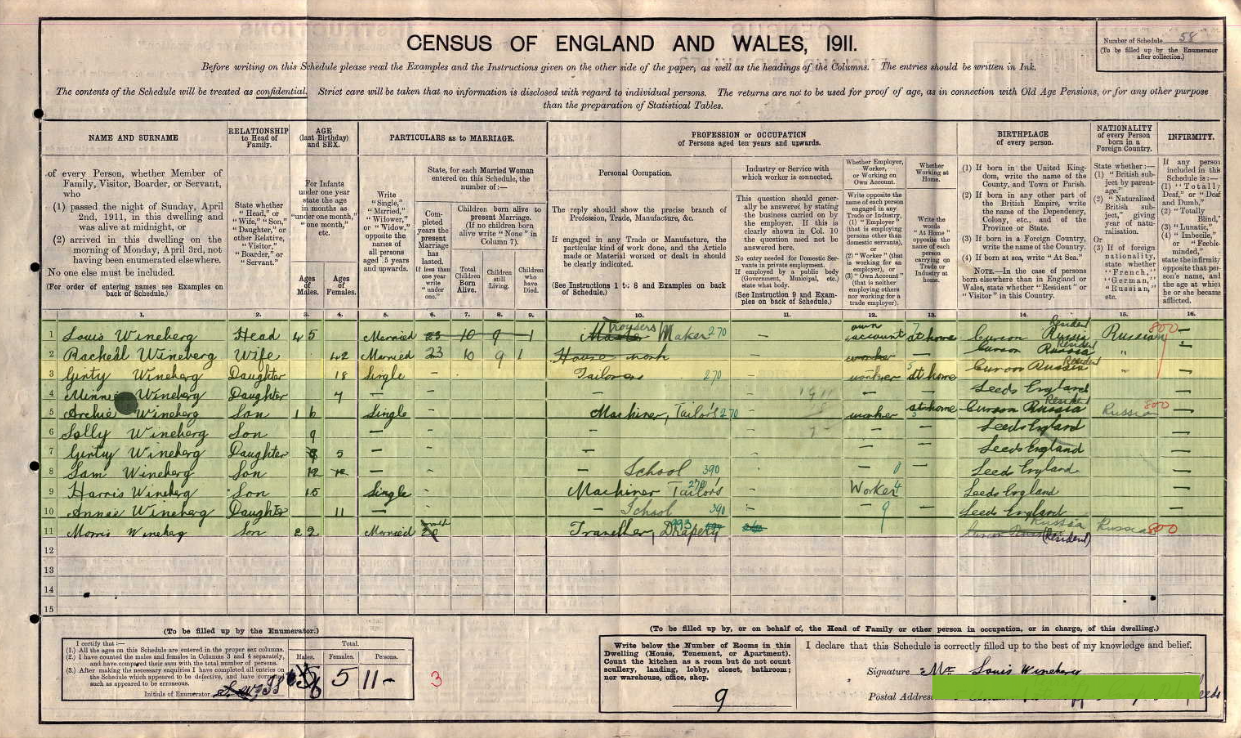 CENSUS OF ENGLAND AND WALES, 1911.
Number of Schedule 58
(To be filled up by the Enumerator after collection.)
Before writing on this Schedule please read the Examples and the Instructions given on the other side of the paper, as well as the headings of the Columns. The entries should be written in Ink.
The contents of the Schedule will be treated as confidential. Strict care will be taken that no information is disclosed with regard to individual persons. The returns are not to be used for proof of age, as in connection with Old Age Pensions, or for any other purpose
than the preparation of Statistical Tables.
NAME AND SURNAME
of every Person, whether Member of Family, Visitor, Boarder, or Servant, who
(1) passed the night of Sunday, April 2nd, 1911, in this dwelling and was alive at midnight, or
(2) arrived in this dwelling on the morning of Monday, April 3rd, not having been enumerated elsewhere.
No one else must be included.
(For order of entering names see Examples on back of Schedule.)
RELATIONSHIP to Head of Family.
State whether "Head," or "Wife," "Son," "Daughter," or other Relative, "Visitor," "Boarder," or "Servant."
AGE (last Birthday) and SEX.
For Infants under one year state the age in months as "under one month," "one month," etc.
Ages of Males.
Ages of Females.
PARTICULARS as to MARRIAGE.
Write "Single," "Married," "Widower," or "Widow," opposite the names of all persons aged 15 years and upwards.
State, for each Married Woman entered on this Schedule, the number of:—
Completed years the present Marriage has lasted. If less than one year write "under one."
Children born alive to present Marriage. (If no children born alive write "None" in Column 7).
Total Children Born Alive.
Children still Living.
Children who have Died.
PROFESSION or OCCUPATION
of Persons aged ten years and upwards.
Personal Occupation.
The reply should show the precise branch of Profession, Trade, Manufacture, &c.
If engaged in any Trade or Manufacture, the particular kind of work done, and the Article made or Material worked or dealt in should be clearly indicated.
(See Instructions 1 to 8 and Examples on back of Schedule.)
Industry or Service with which worker is connected.
This question should generally be answered by stating the business carried on by the employer. If this is clearly shown in Col. 10 the question need not be answered here.
No entry needed for Domestic Servants in private employment.
If employed by a public body (Government, Municipal, etc.) state what body.
(See Instruction 9 and Examples on back of Schedule.)
Whether Employer, Worker, or Working on Own Account.
Write opposite the name of each person engaged in any Trade or Industry,
(1) "Employer" (that is employing persons other than domestic servants), or
(2) "Worker" (that is working for an employer), or
(3) "Own Account" (that is neither employing others nor working for a trade employer).
Whether Working at Home.
Write the words "At Home" opposite the name of each person carrying on Trade or Industry at home.
BIRTHPLACE of every person.
(1) If born in the United Kingdom, write the name of the County, and Town or Parish.
(2) If born in any other part of the British Empire, write the name of the Dependency, Colony, etc., and of the Province or State.
(3) If born in a Foreign Country, write the name of the Country.
(4) If born at sea, write "At Sea."
NOTE.—In the case of persons born elsewhere than in England or Wales, state whether "Resident" or "Visitor" in this Country.
NATIONALITY of every Person born in a Foreign Country.
State whether:—
(1) "British subject by parentage."
(2) "Naturalised British subject," giving year of naturalisation.
Or
(3) If of foreign nationality, state whether "French," "German," "Russian," etc.
INFIRMITY.
If any person included in this Schedule is:—
(1) "Totally Deaf," or "Deaf and Dumb,"
(2) "Totally Blind,"
(3) "Lunatic,"
(4) "Imbecile," or "Feeble-minded,"
state the infirmity opposite that person's name, and the age at which he or she became afflicted.
1. 2. 3. 4. 5. 6. 7. 8. 9. 10. 11. 12. 13. 14. 15. 16.
1 Louis Wineberg Head 45 Married 23 10 9 1 Trousers Maker 270 own account at home Curson Russia Resident Russian 800 —
2 Racheal Wineberg Wife 42 Married 23 10 9 1 House work worker — Curson Russia Resident " —
3 Girty Wineberg Daughter 18 Single — Tailoress 270 worker at home Curson Russia Resident " —
4 Minnie Wineberg Daughter 7 — — — Leeds England —
5 Archie Wineberg Son 16 Single — Machiner, Tailor's 270 worker at home Curson Russia Resident Russia 800 —
6 Solly Wineberg Son 9 — — — Leeds England —
7 Girty Wineberg Daughter 5 — — — Leeds England —
8 Sam Wineberg Son 12 — — School 390 — Leeds England —
9 Harris Wineberg Son 15 Single — Machiner Tailor's 270 Worker — Leeds England —
10 Annie Wineberg Daughter 11 — — School 390 — Leeds England —
11 Morris Wineberg Son 22 Married Traveller, Drapery Russia (Resident) Russia 800 —
12
13
14
15
(To be filled up by the Enumerator.)
I certify that:—
(1.) All the ages on this Schedule are entered in the proper sex columns.
(2.) I have counted the males and females in Columns 3 and 4 separately, and have compared their sum with the total number of persons.
(3.) After making the necessary enquiries I have completed all entries on the Schedule which appeared to be defective, and have corrected such as appeared to be erroneous.
Initials of Enumerator
Total.
Males. Females. Persons.
6 5 11-
3
(To be filled up by, or on behalf of, the Head of Family or other person in occupation, or in charge, of this dwelling.)
Write below the Number of Rooms in this Dwelling (House, Tenement, or Apartment). Count the kitchen as a room but do not count scullery, landing, lobby, closet, bathroom; nor warehouse, office, shop.
9
I declare that this Schedule is correctly filled up to the best of my knowledge and belief.
Signature Mr Louis Wineberg
Postal Address